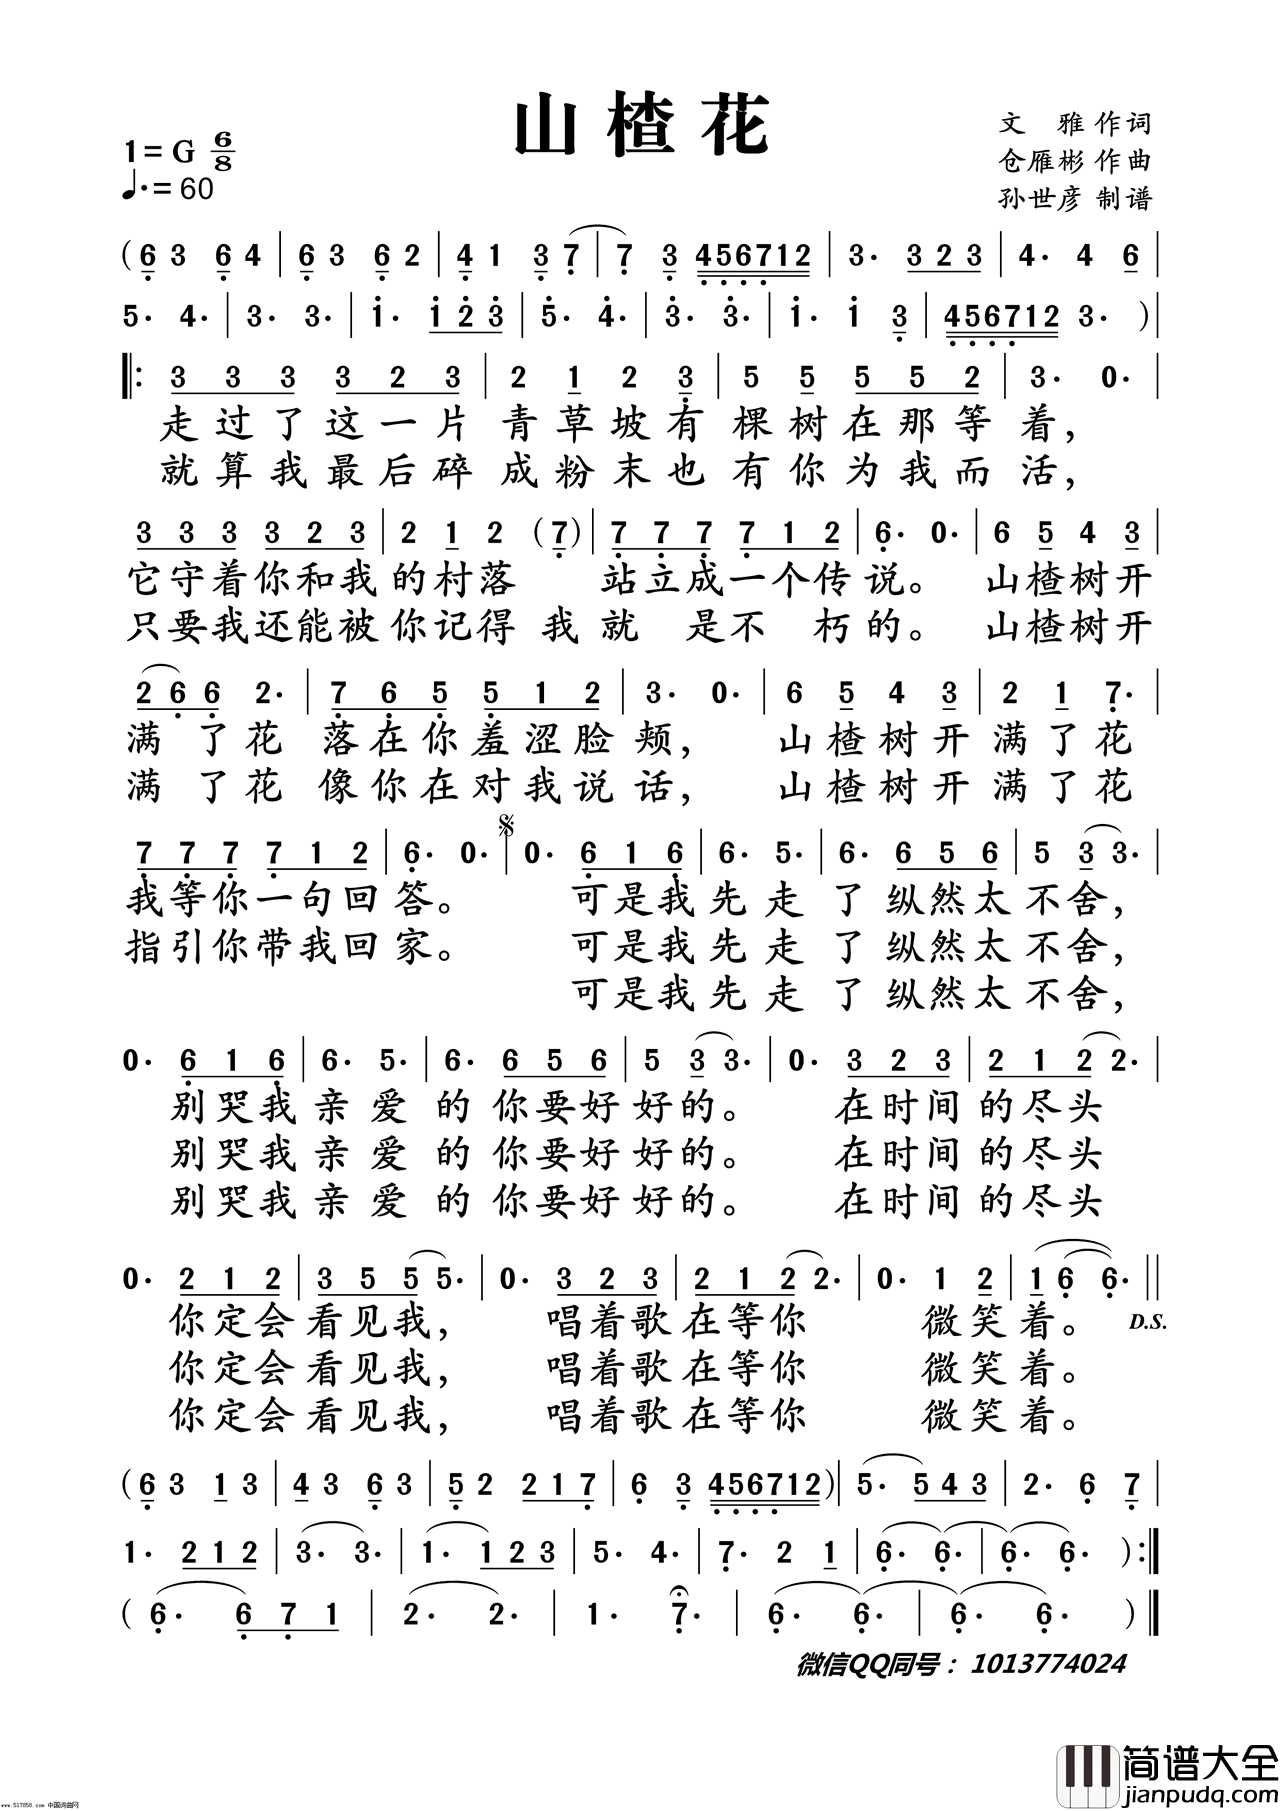 山楂花
1=G 6/8
♩.=60
文 雅 作词
仓雁彬 作曲
孙世彦 制谱
( 6 3 6 4 | 6 3 6 2 | 4 1 3 7 | 7 3 456712 | 3· 3 2 3 | 4· 4 6 |
5· 4· | 3· 3· | 1· 1 2 3 | 5· 4· | 3· 3· | 1· 1 3 | 456712 3· ) |
|: 3 3 3 3 2 3 | 2 1 2 3 | 5 5 5 5 2 | 3· 0· |
走过了这一片 青草坡有 棵树在那等着,
就算我最后碎 成粉末也 有你为我而活,
3 3 3 3 2 3 | 2 1 2 (7) | 7 7 7 7 1 2 | 6· 0· | 6 5 4 3 |
它守着你和我的村落 站立成一个传说。 山楂树开
只要我还能被你记得 我就 是不 朽的。 山楂树开
2 6 6 2· | 7 6 5 5 1 2 | 3· 0· | 6 5 4 3 | 2 1 7· |
满 了花 落在你羞涩脸颊, 山楂树开满了花
满 了花 像你在对我说话, 山楂树开满了花
7 7 7 7 1 2 | 6· 0· | 0· 6 1 6 | 6· 5· | 6· 6 5 6 | 5 3 3· |
我等你一句回答。 可是我先走了纵然太不舍,
指引你带我回家。 可是我先走了纵然太不舍,
可是我先走了纵然太不舍,
0· 6 1 6 | 6· 5· | 6· 6 5 6 | 5 3 3· | 0· 3 2 3 | 2 1 2 2· |
别哭我亲爱的你要好好的。 在时间的尽头
别哭我亲爱的你要好好的。 在时间的尽头
别哭我亲爱的你要好好的。 在时间的尽头
0· 2 1 2 | 3 5 5 5· | 0· 3 2 3 | 2 1 2 2· | 0· 1 2 | 1 6 6· ||
你定会看见我, 唱着歌在等你 微笑着。 D.S.
你定会看见我, 唱着歌在等你 微笑着。
你定会看见我, 唱着歌在等你 微笑着。
( 6 3 1 3 | 4 3 6 3 | 5 2 2 1 7 | 6 3 456712 ) | 5· 5 4 3 | 2· 6 7 |
1· 2 1 2 | 3· 3· | 1· 1 2 3 | 5· 4· | 7· 2 1 | 6· 6· | 6· 6· ) :|
( 6· 6 7 1 | 2· 2· | 1· 7· | 6· 6· | 6· 6· ) |
微信QQ同号：1013774024
简谱大全
jianpudq.com
www.517858.com 中国词曲网